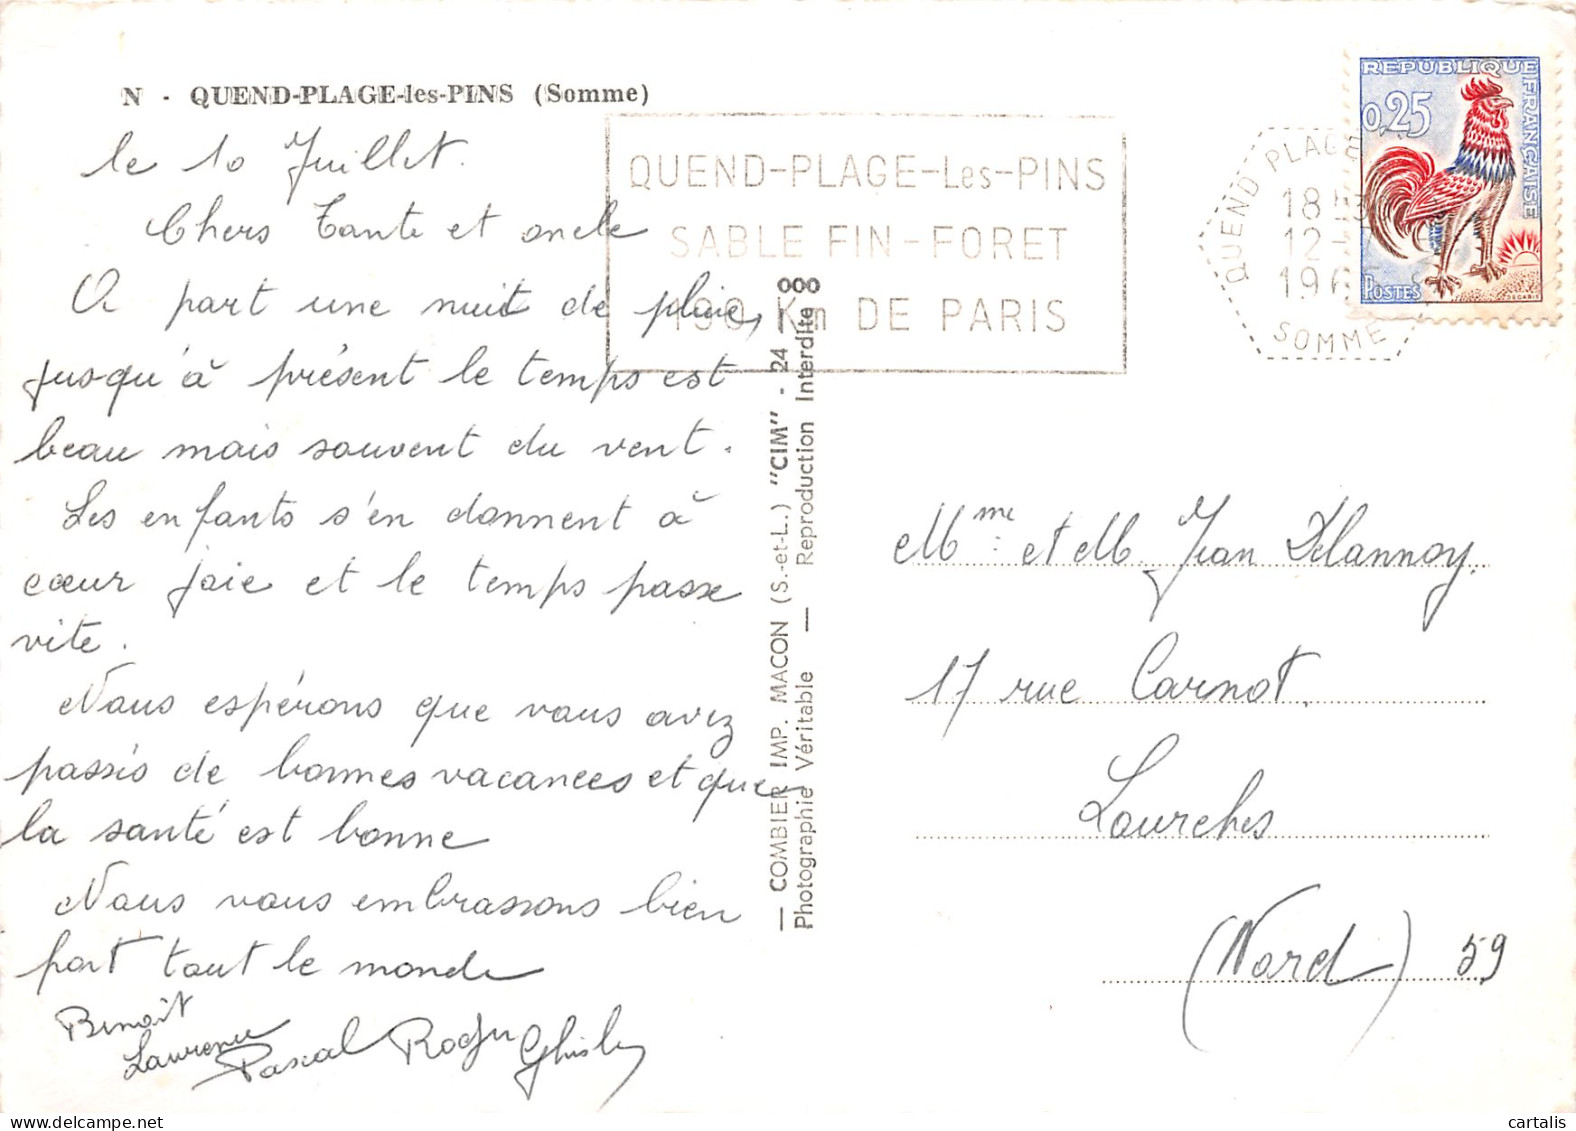 N - QUEND-PLAGE-les-PINS (Somme)
le 10 Juillet.
Chers Tante et oncle
A part une nuit de pluie,
jusqu'à présent le temps est
beau mais souvent du vent.
Les enfants s'en donnent à
cœur joie et le temps passe
vite.
Nous espérons que vous avez
passés de bonnes vacances et que
la santé est bonne
Nous vous embrassons bien
fort tout le monde
Benoit
Laurence
Pascal Roger Ghisly
— COMBIER IMP. MACON (S.-et-L.) "CIM" - 24 000
Photographie Véritable — Reproduction Interdite
QUEND-PLAGE-Les-PINS
SABLE FIN-FORET
190 Km DE PARIS
QUEND PLAGE
18
12-
196
SOMME
REPUBLIQUE FRANÇAISE
0,25
POSTES
DECARIS
Mme et M Jean Delannoy.
17 rue Carnot.
Lourches
(Nord) 59
cartalis